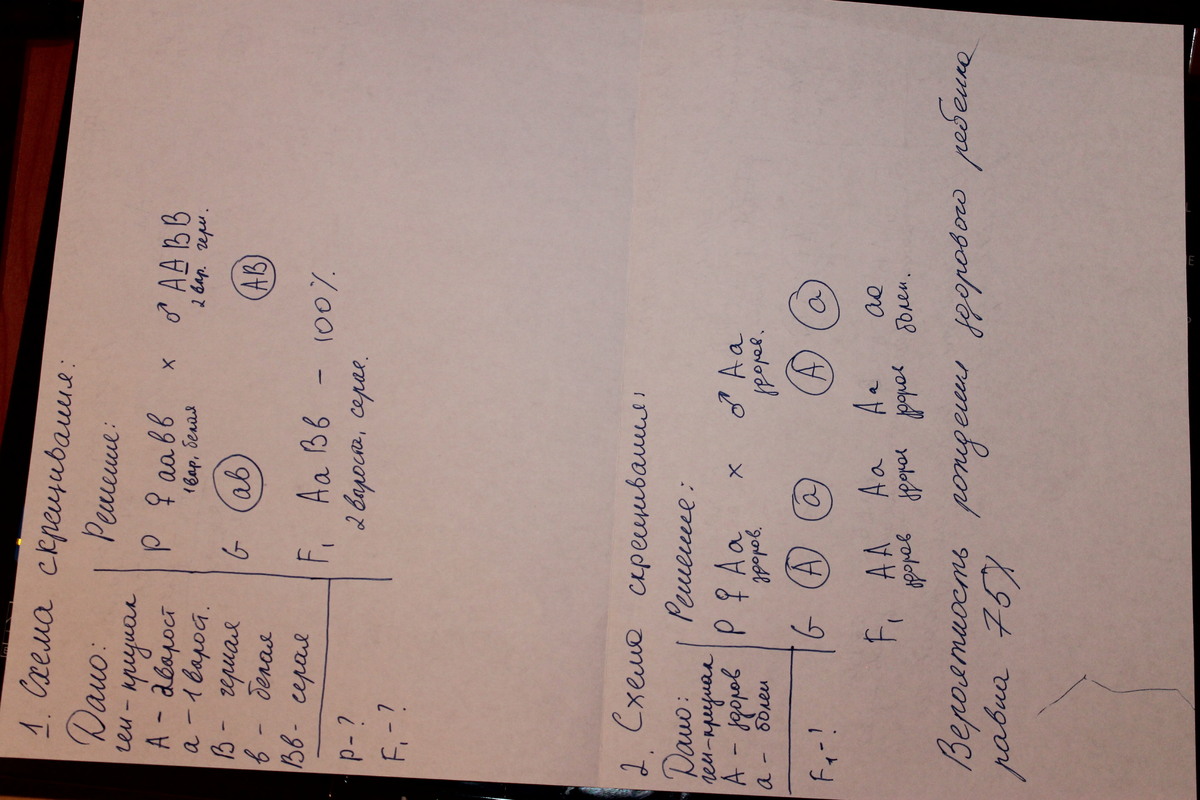 1. Схема скрещивания:
Дано:
ген-признак
А - 2варост
а - 1варост.
В - черная
в - белая
Вв - серая
Р-?
F₁-?
Решение:
Р ♀ аавв × ♂ ААВВ
1вар, белая 2вар. черн.
G ав АВ
F₁ АаВв - 100%.
2вароста, серая.
2. Схема скрещивания:
Дано:
ген-признак
А - здоров
а - болен
F₁-?
Решение:
Р ♀ Аа × ♂ Аа
здоров. здоров.
G А а А а
F₁ АА Аа Аа аа
здоров здоров здоров болен.
Вероятность рождения здорового ребенка
равна 75%